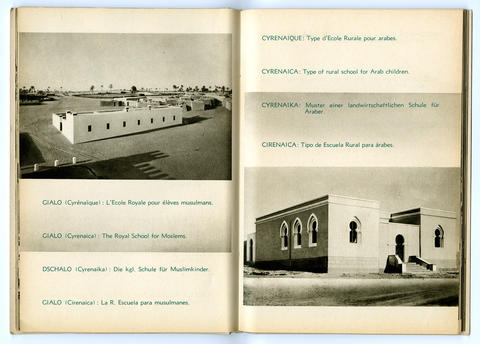 GIALO (Cyrénaïque) : L'Ecole Royale pour élèves musulmans.
GIALO (Cyrenaica) : The Royal School for Moslems.
DSCHALO (Cyrenaika) : Die kgl. Schule für Muslimkinder.
GIALO (Cirenaica) : La R. Escuela para musulmanes.
CYRENAIQUE: Type d'Ecole Rurale pour arabes.
CYRENAICA: Type of rural school for Arab children.
CYRENAIKA: Muster einer landwirtschaftlichen Schule für
Araber.
CIRENAICA: Tipo de Escuela Rural para árabes.